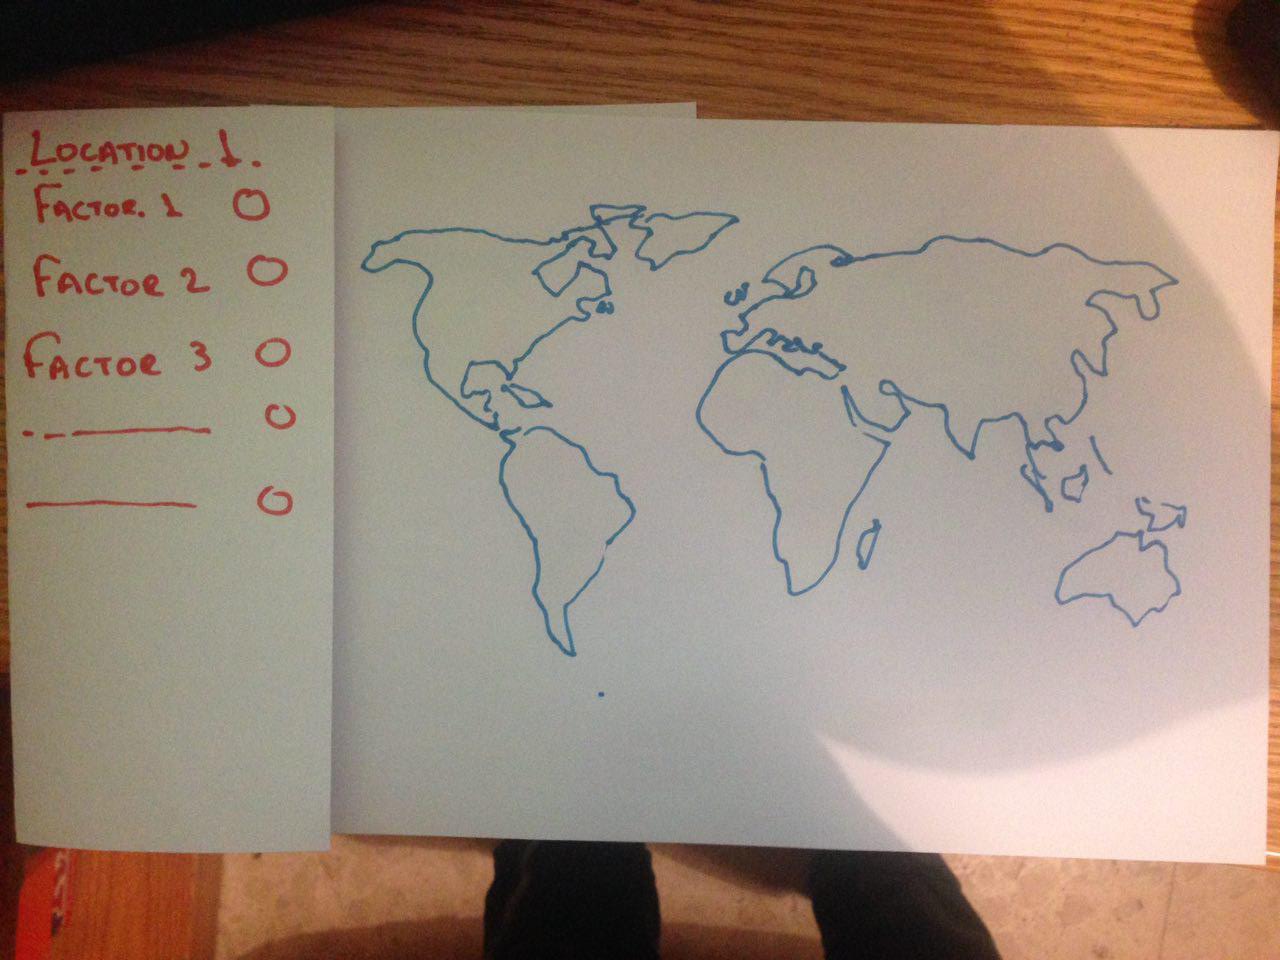 LOCATION 1.
FACTOR. 1
FACTOR 2
FACTOR 3